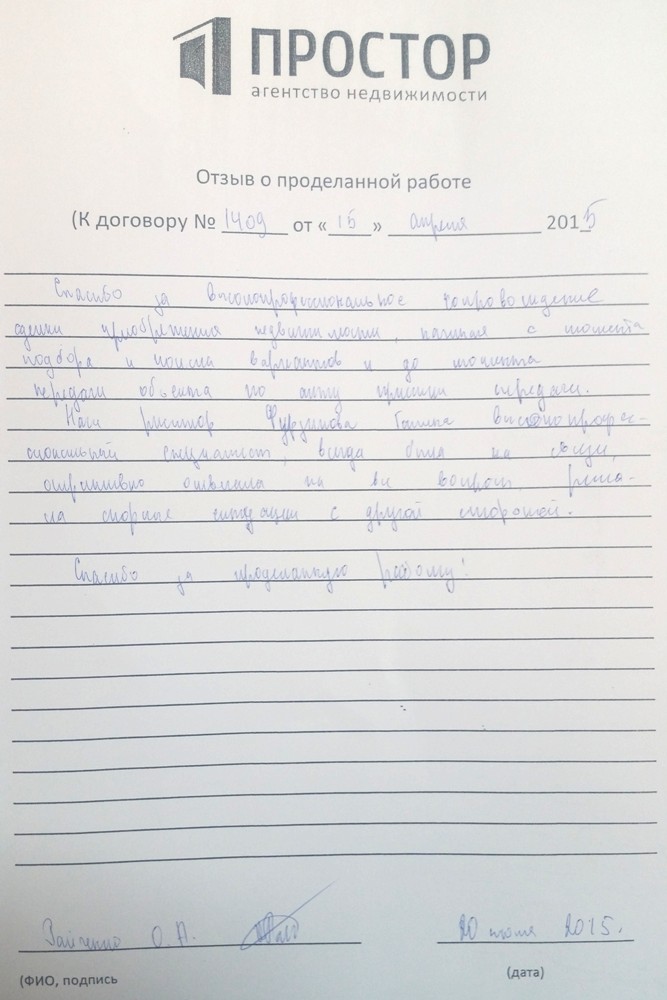 ПРОСТОР
агентство недвижимости
Отзыв о проделанной работе
(К договору № 1409 от «15» апреля 2015
Спасибо за высокопрофессиональное сопровождение
сделки приобретения недвижимости, начиная с момента
подбора и поиска вариантов и до момента
передачи объекта по акту приемки передачи.
Наш риэлтор Фурзикова Галина высокопрофес-
сиональный специалист, всегда была на связи,
оперативно отвечала на все вопросы, реша-
ла спорные ситуации с другой стороной.
Спасибо за проделанную работу!
О.А. 20 2015.
(ФИО, подпись (дата)